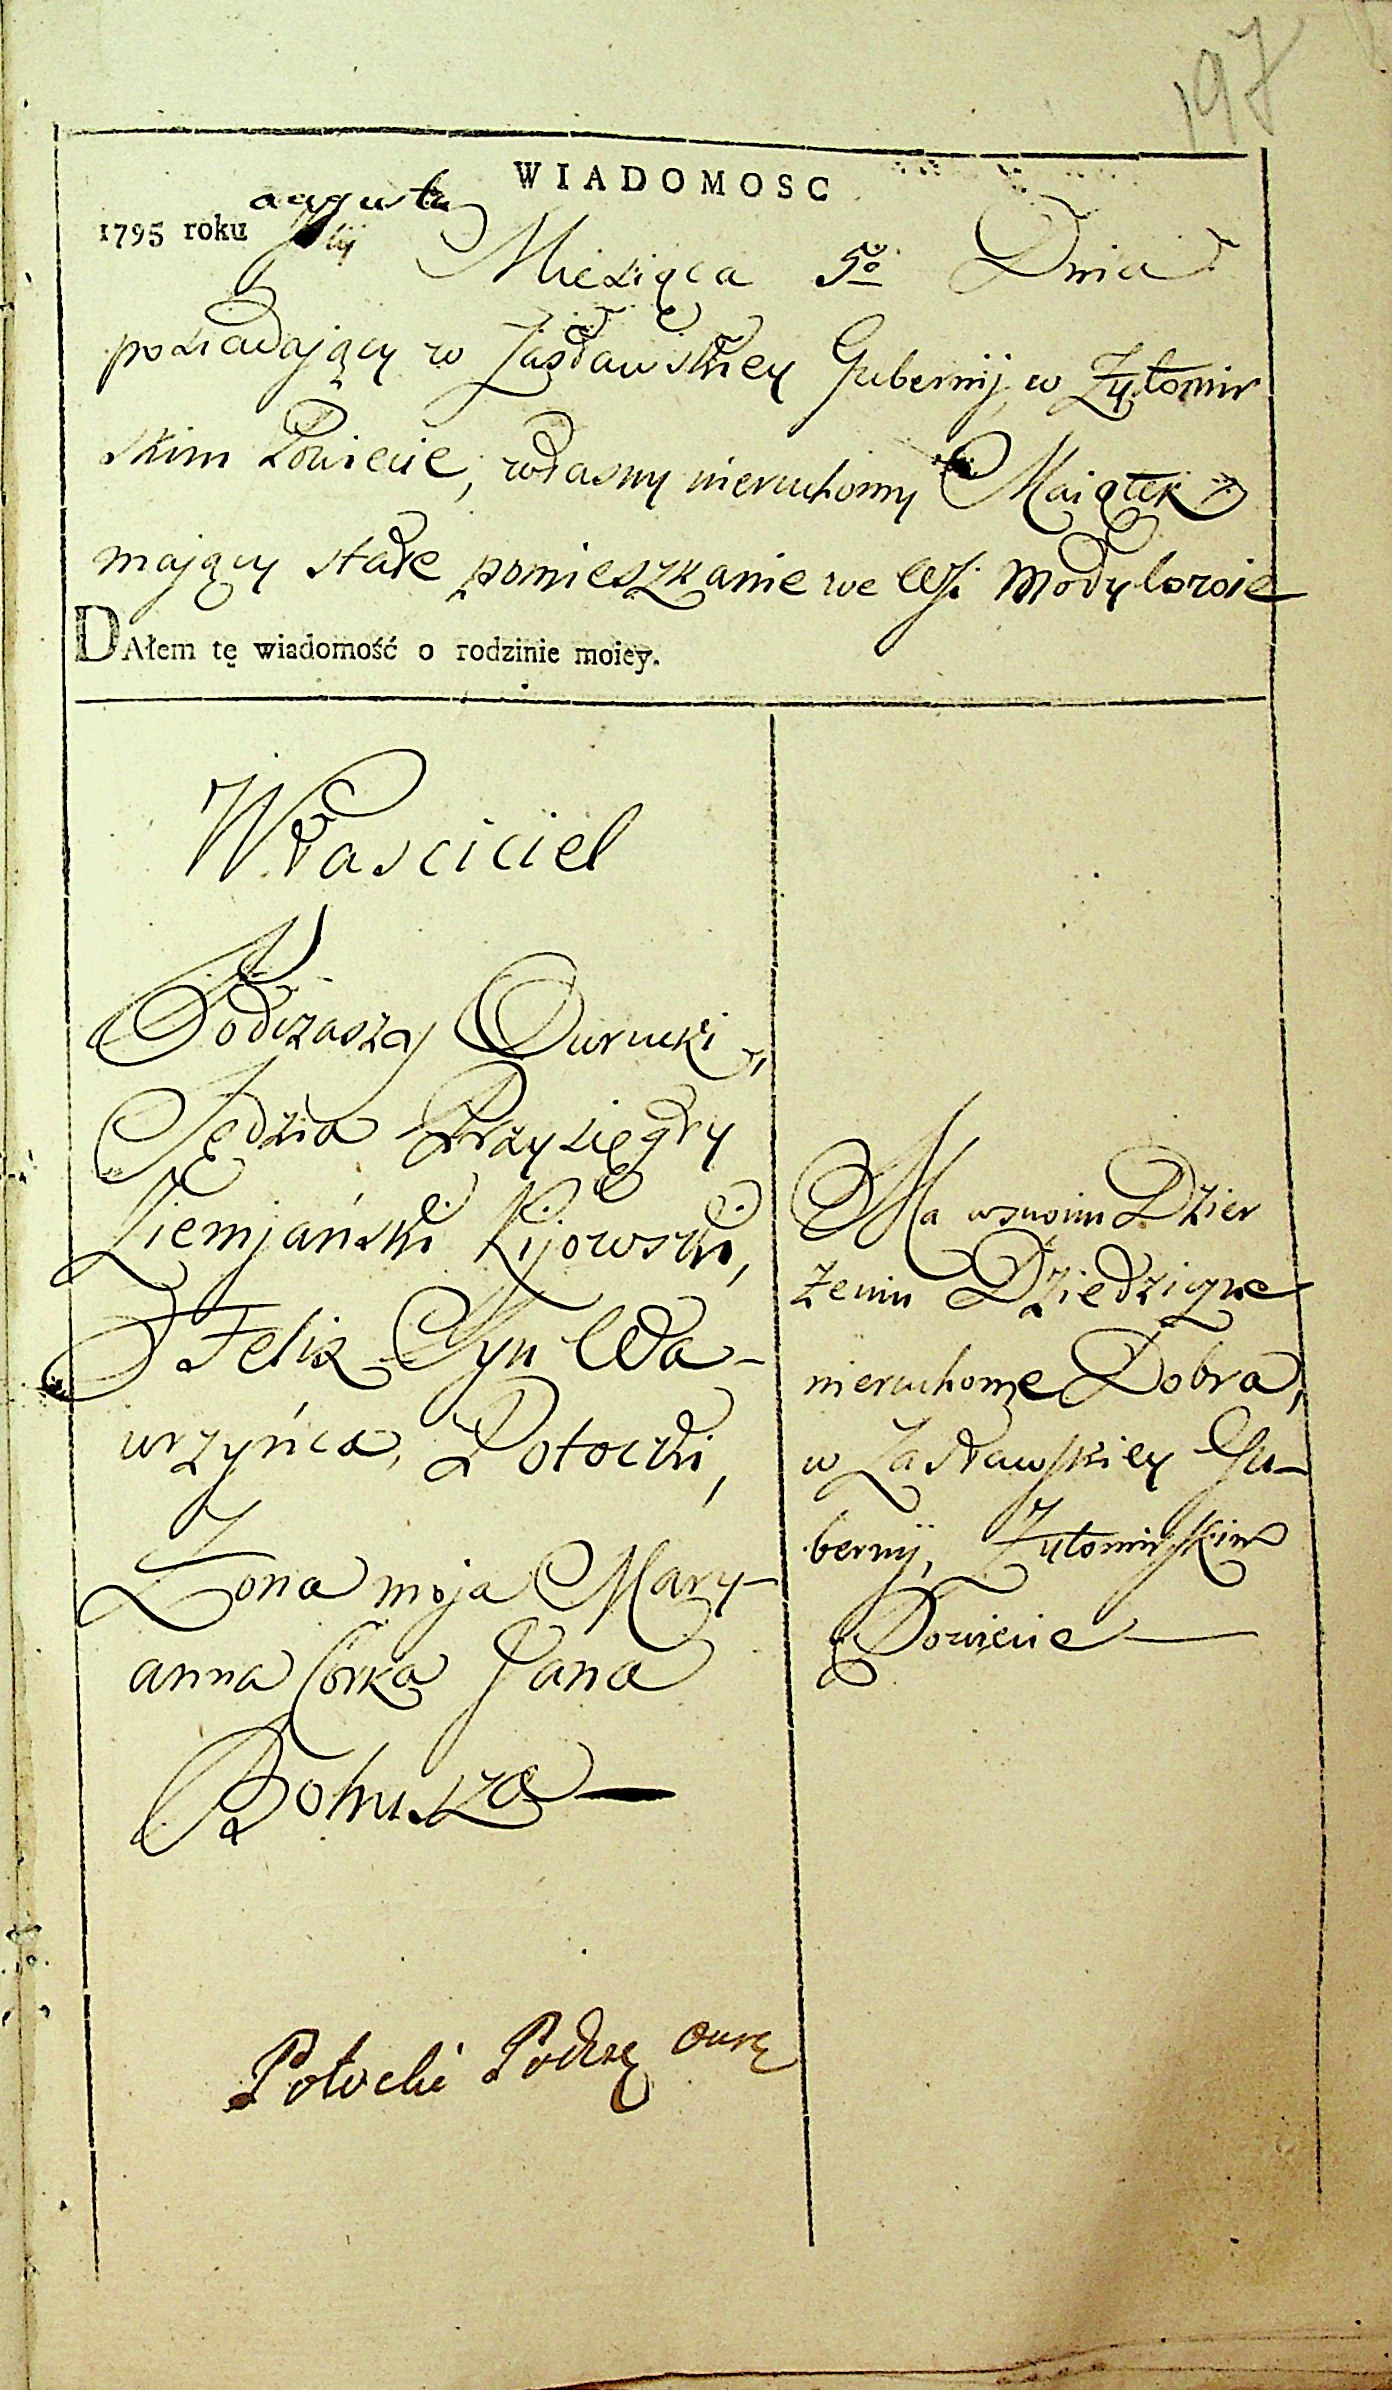 197
WIADOMOSC
augusta
1795 roku Julij Miesiąca 5o Dnia
posiadający w Zasławskiey Gubernij, w Zytomir
skim Powiecie, własny nieruchomy Maiątek
mający stałe pomieszkanie we Wsi Modylowie
DAłem tę wiadomość o rodzinie moiey.
Własciciel
Podczaszy Owrucki,
Sędzia Przysięgły
Ziemjański Kijowski,
Felix Syn Wa-
wrzyńca, Potocki,
Zona moja Mary-
anna Corka Jana
Bohusza
Ma wswoim Dzier
zeniu Dziedziczne
nieruchome Dobra,
w Zasławskiey Gu-
bernij, Zytomirskim
Powiecie
Potocki Podczą Owrą